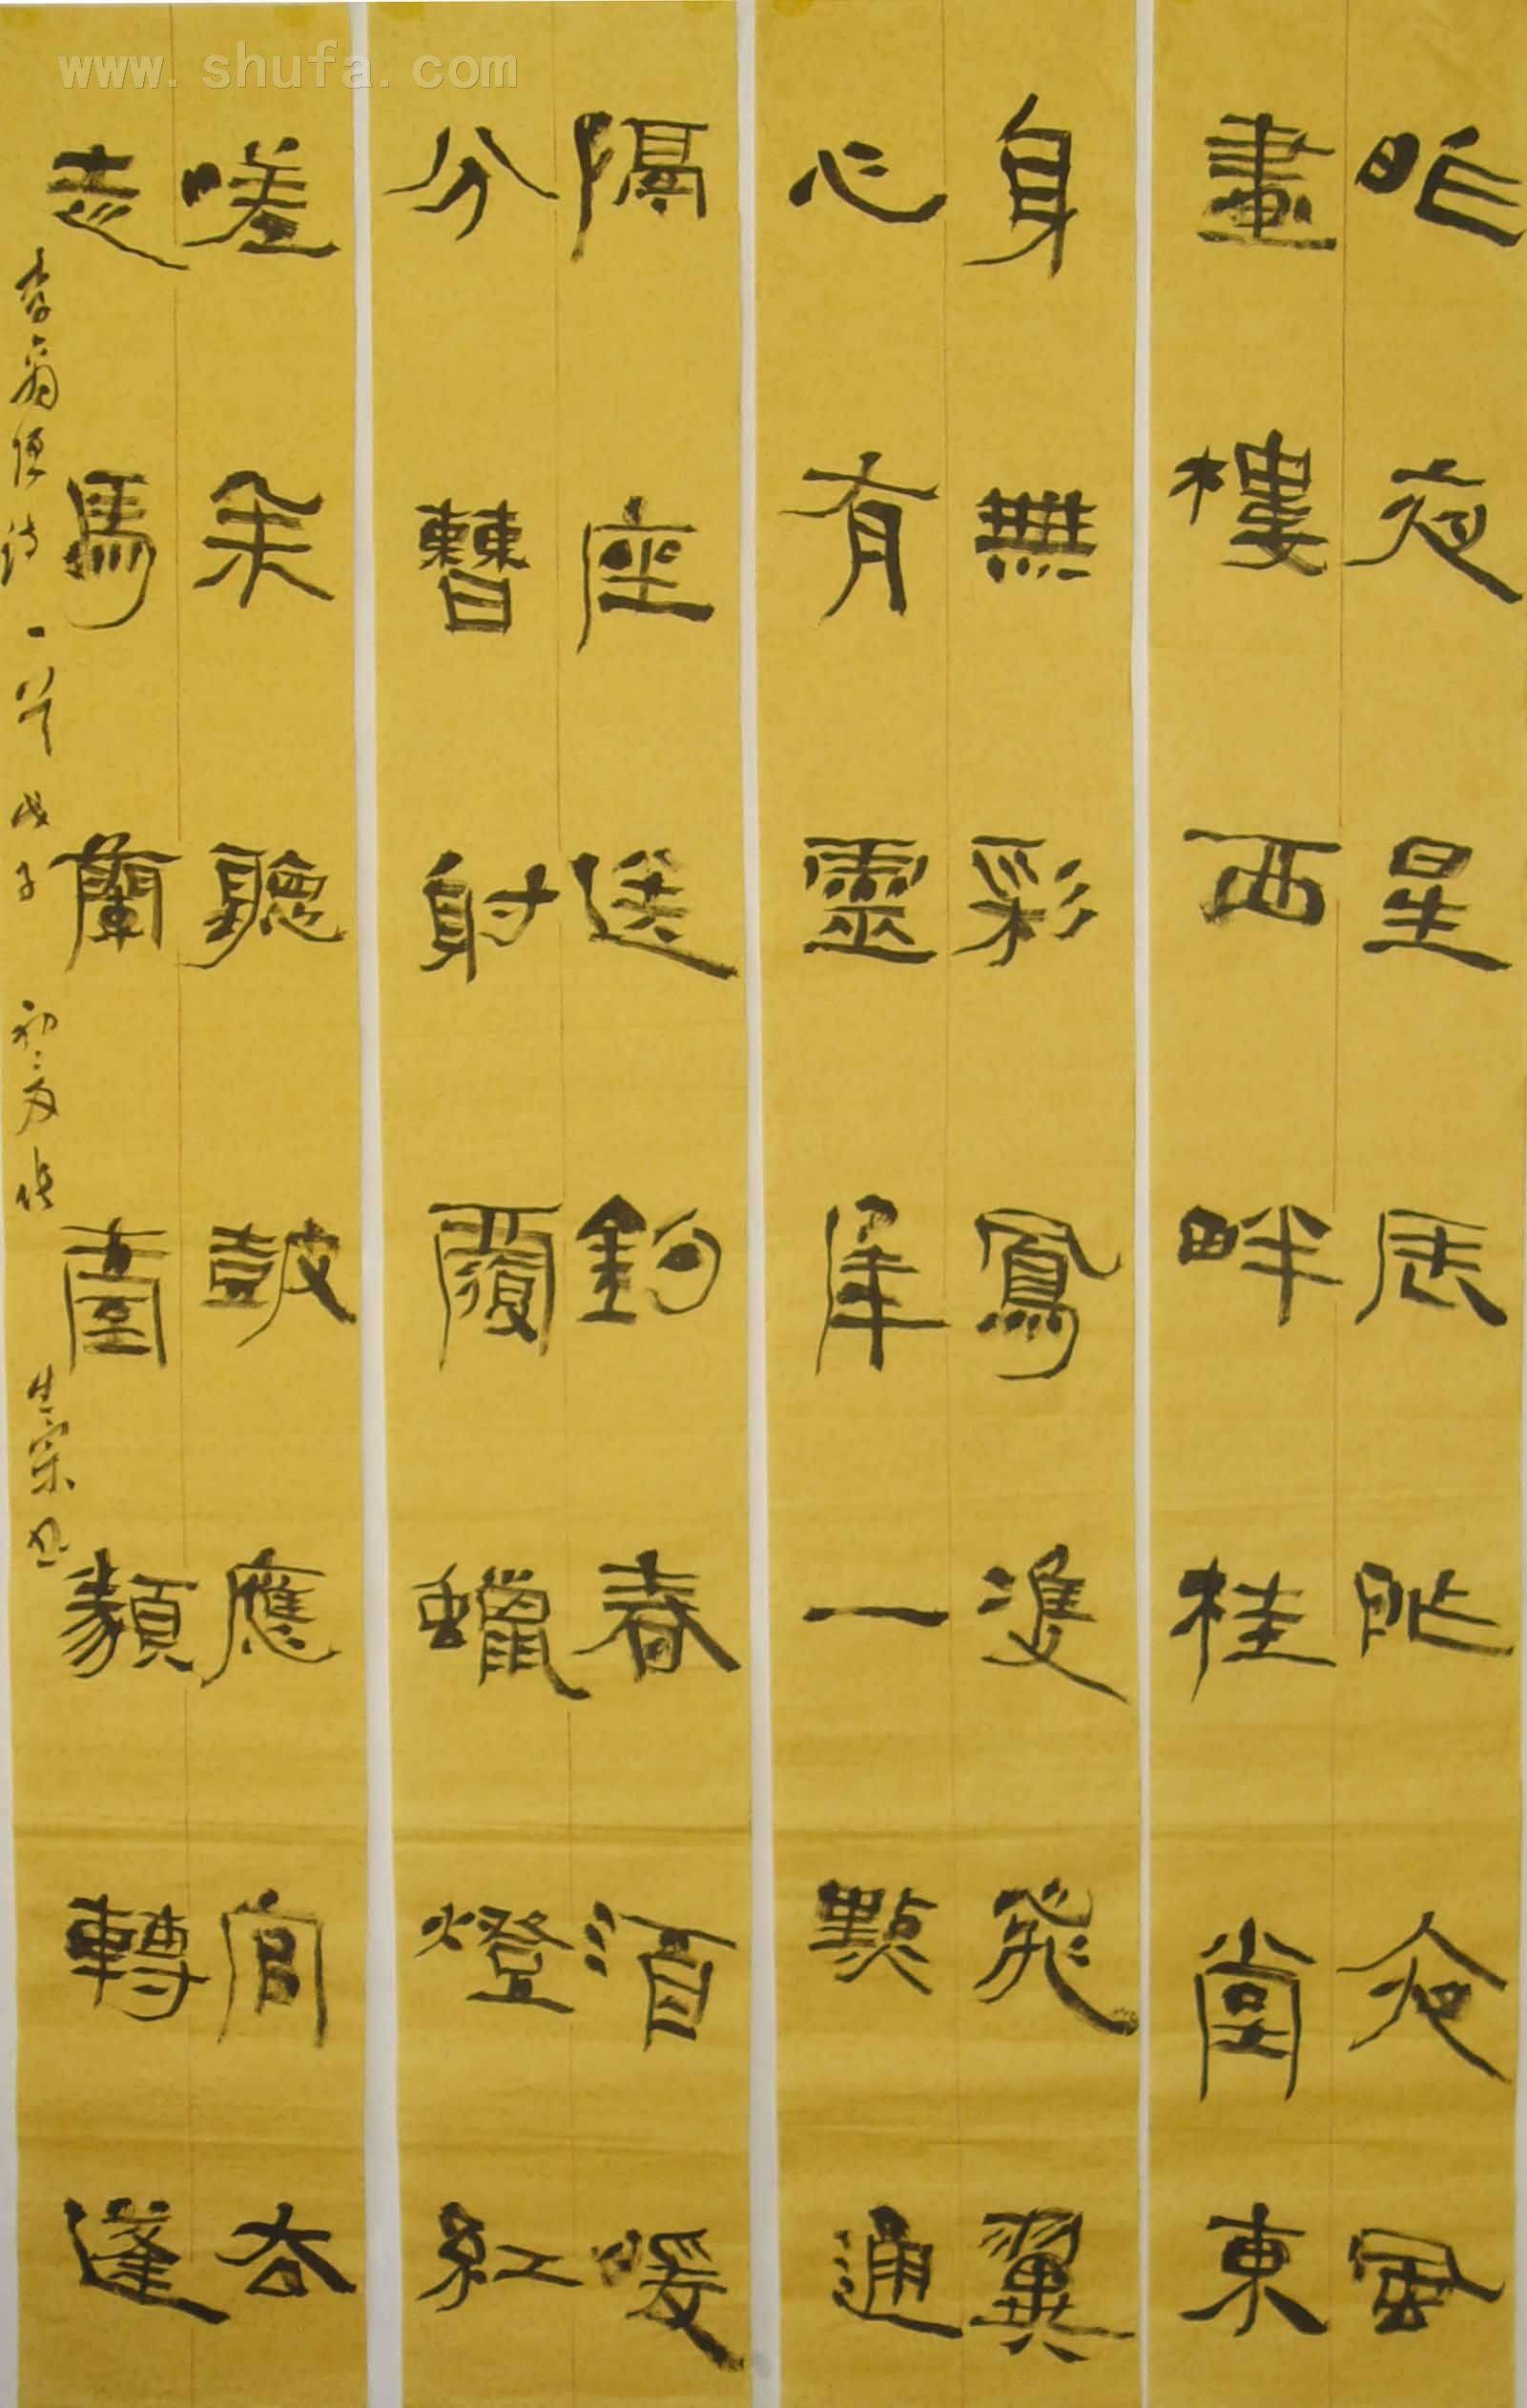 www.shufa.com
昨夜星辰昨夜風
畫樓西畔桂堂東
身無彩鳳雙飛翼
心有靈犀一點通
隔座送鉤春酒暖
分曹射覆蠟燈紅
嗟余聽鼓應官去
走馬蘭臺類轉蓬
李商隱詩一首 戊子 初夏